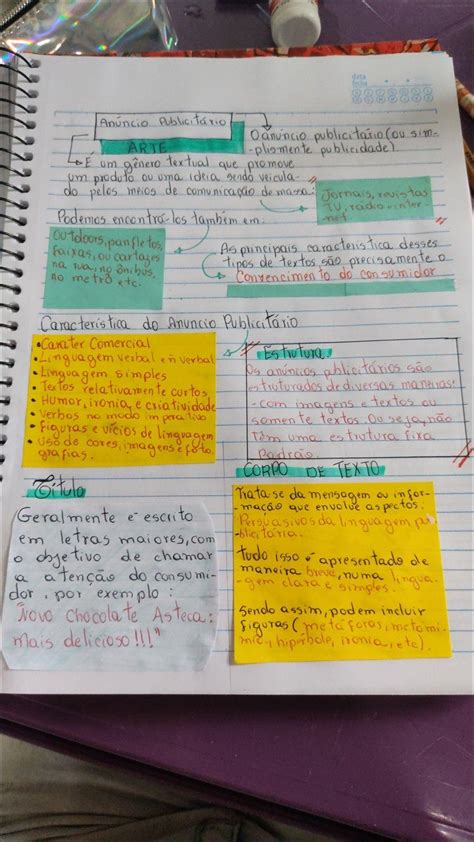 data
fecha
Anúncio Publicitário
ARTE
O anúncio publicitário (ou sim-
-plismente publicidade)
É um gênero textual que promove
um produto ou uma ideia sendo veicula-
do pelos meios de comunicação de massa:
Jornais, revistas
TV, rádio e inter-
net
Podemos encontrá-los também em:
Outdoors, panfletos,
faixas, ou cartazes
na rua, no ônibus,
no metrô etc.
As principais característica desses
tipos de textos são precisamente o
Convencimento do consumidor
Característica do Anuncio Publicitário
• Carater Comercial
• Linguagem verbal e ñ verbal
• Linguagem simples
• Textos relativamente curtos
• Humor, ironia, e criatividade
• Verbos no modo imprativo
• Figuras e vícios de linguagem
• Uso de cores, imagens e foto
grafias.
Estrutura
Os anúncios pblicitários são
estruturados de diversas maneiras:
- com imagens e textos ou
somente textos Ou seja, não
têm uma estrutura fixa
Padrão.
Título
Geralmente é escrito
em letras maiores, com
o objetivo de chamar
a atenção do consumi-
dor, por exemplo:
"Novo Chocolate Asteca:
mais delicioso!!!"
CORPO DE TEXTO
Trata-se da mensagem ou infor-
mação que envolve aspectos.
Persuasivos da linguagem pu-
blicitária.
Tudo isso é apresentado de
maneira breve, numa lingua-
gem clara e simples.
Sendo assim, podem incluir
figuras (metáforas, metoni-
mia, hipérbole, ironia, etc).